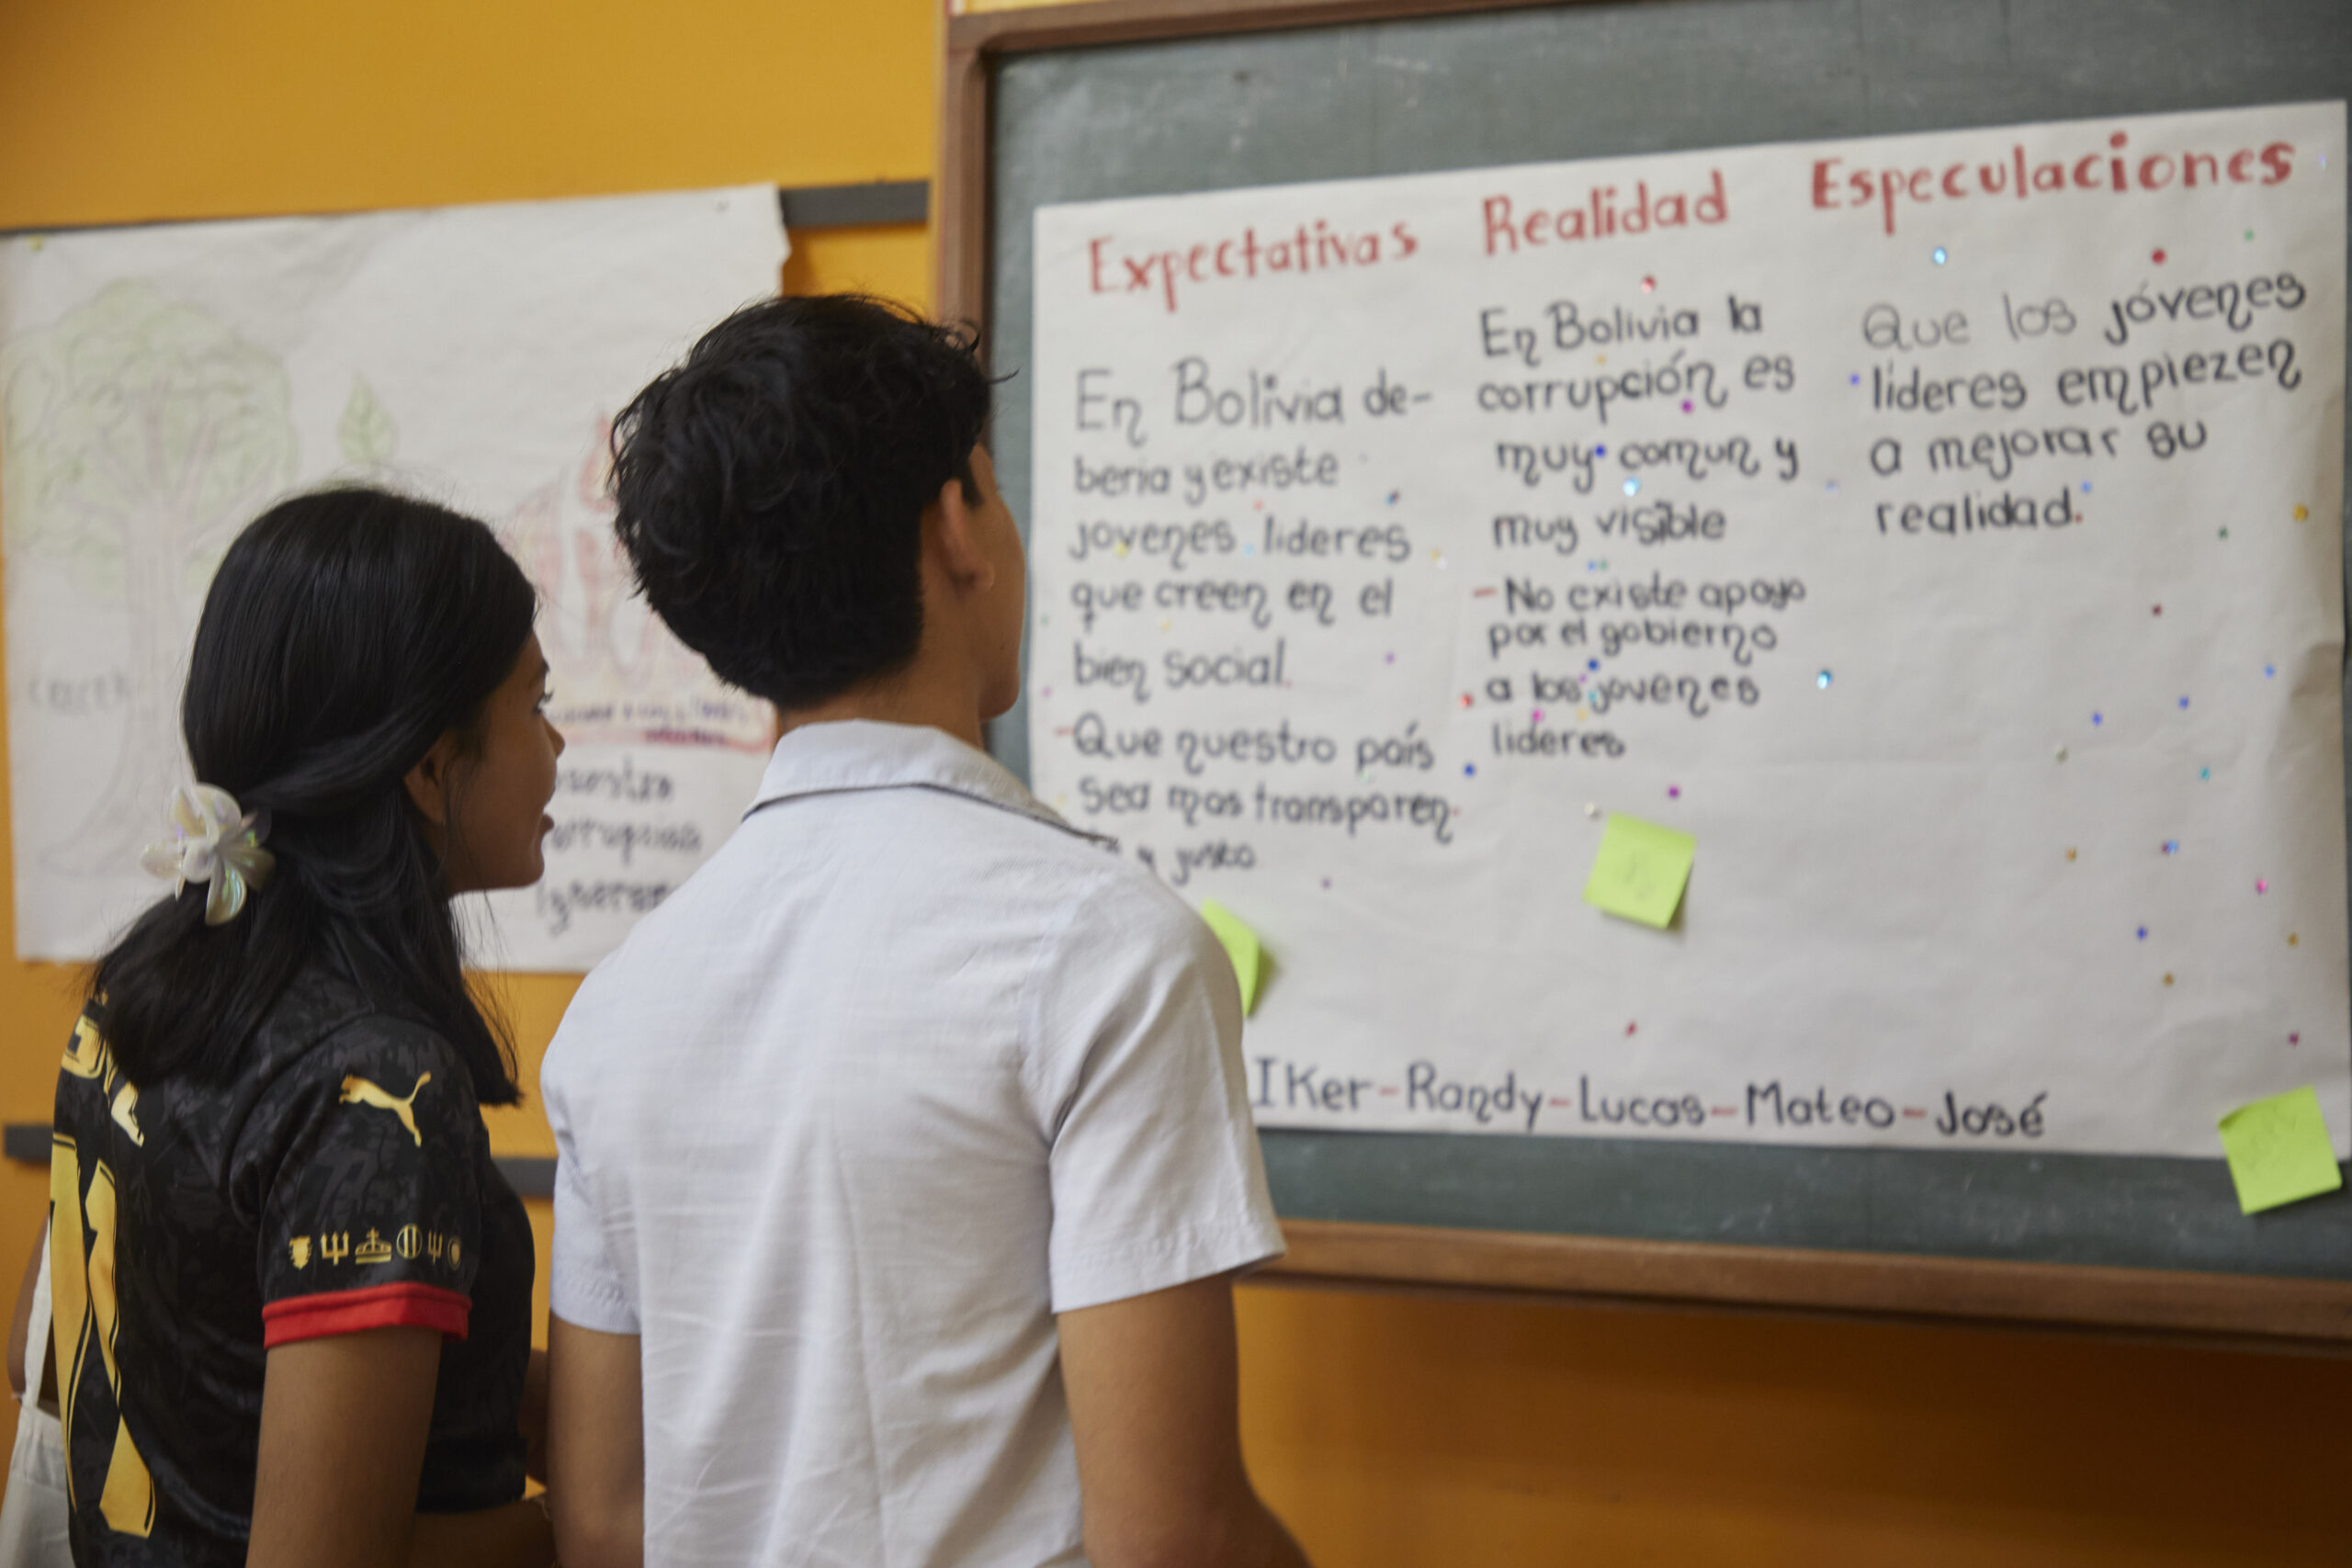 Expectativas Realidad Especulaciones
En Bolivia de-
beria y existe
jovenes lideres
que creen en el
bien social.
-Que nuestro país
sea mas transparen-
y justo
En Bolivia la
corrupción es
muy comun y
muy visible
-No existe apoyo
por el gobierno
a los jovenes
lideres
Que los jóvenes
lideres empiezen
a mejorar su
realidad.
Iker-Randy-Lucas-Mateo-José